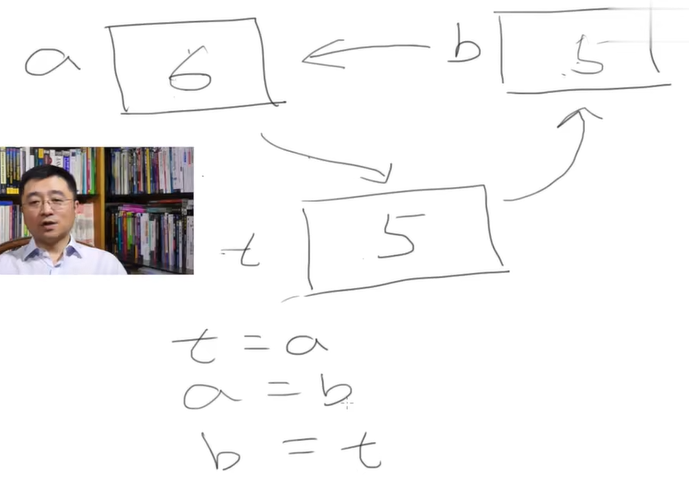 a 6 b 5
t 5
t = a
a = b
b = t